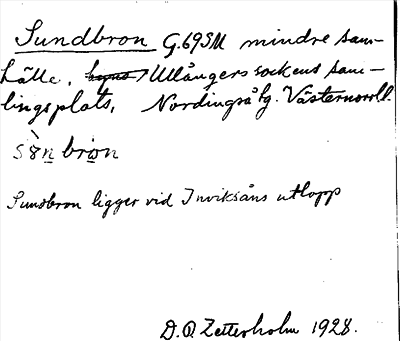 Sundbron G.69SM mindre sam-
hälle, Ullångers sockens sam-
lingsplats, Nordingrå tg. Västernorrl.
sɵ̀n bron
Sundbron ligger vid Inviksåns utlopp
D.O. Zetterholm 1928.